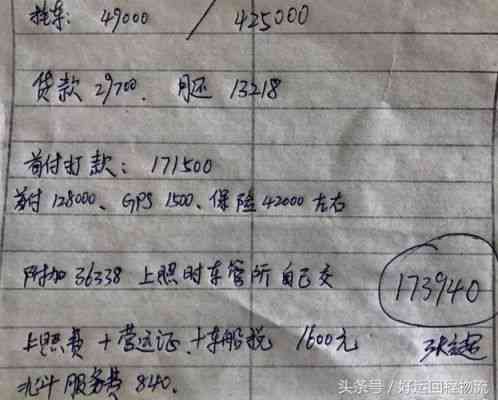 挂车: 49000 / 425000
贷款 29700. 月还 13218
首付打款: 171500
首付 128000、GPS 1500、保险 42000 左右
附加 36338 上照时车管所自己交
173940
上照费 + 营运证、+车船税 1600元
北斗服务费 840.
头条号/好运回程物流